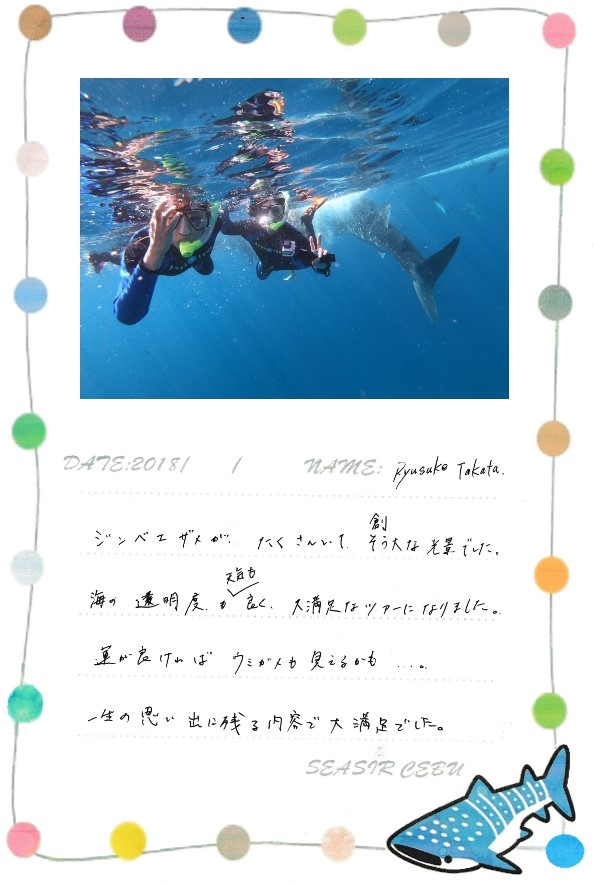 DATE:2018/ / NAME: Ryusuke Takata.
創
ジンベエザメが、たくさんいて、そう大な光景でした。
天気も
海の透明度も良く、大満足なツアーになりました。
運が良ければウミガメも見えるかも....。
一生の思い出に残る内容で大満足でした。
SEASIR CEBU